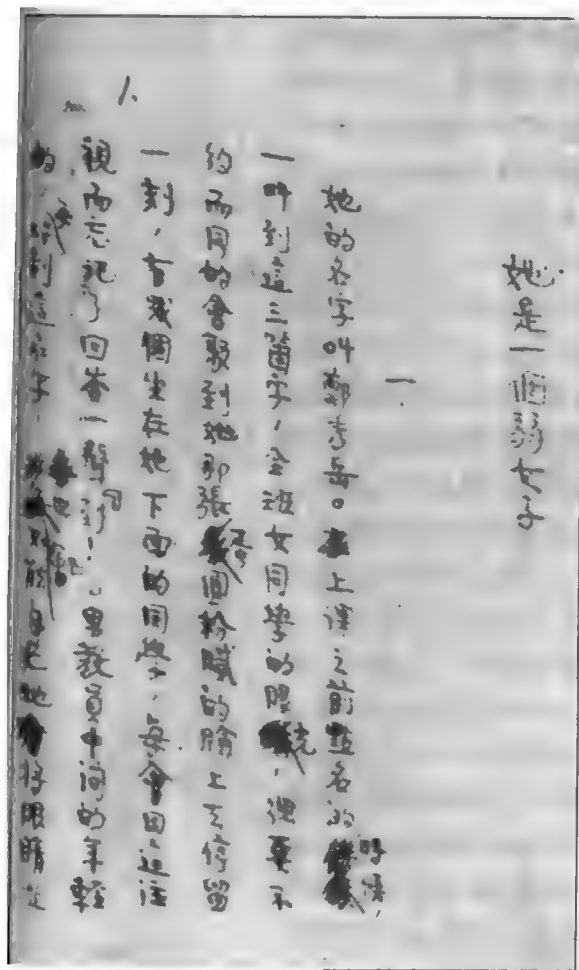 她是一個弱女子
一
她的名字叫鄭秀岳。上課之前點名的時候,
一叫到這三個字,全班女同學的眼光,總要不
約而同的會聚到她那張蛋圓粉膩的臉上去停留
一刻,有幾個坐在她下面的同學,每會因這注
視而忘記了回答一聲「到!」。男教員中間的年輕
的,每叫到這名字,也會不能自已地將眼睛
1.